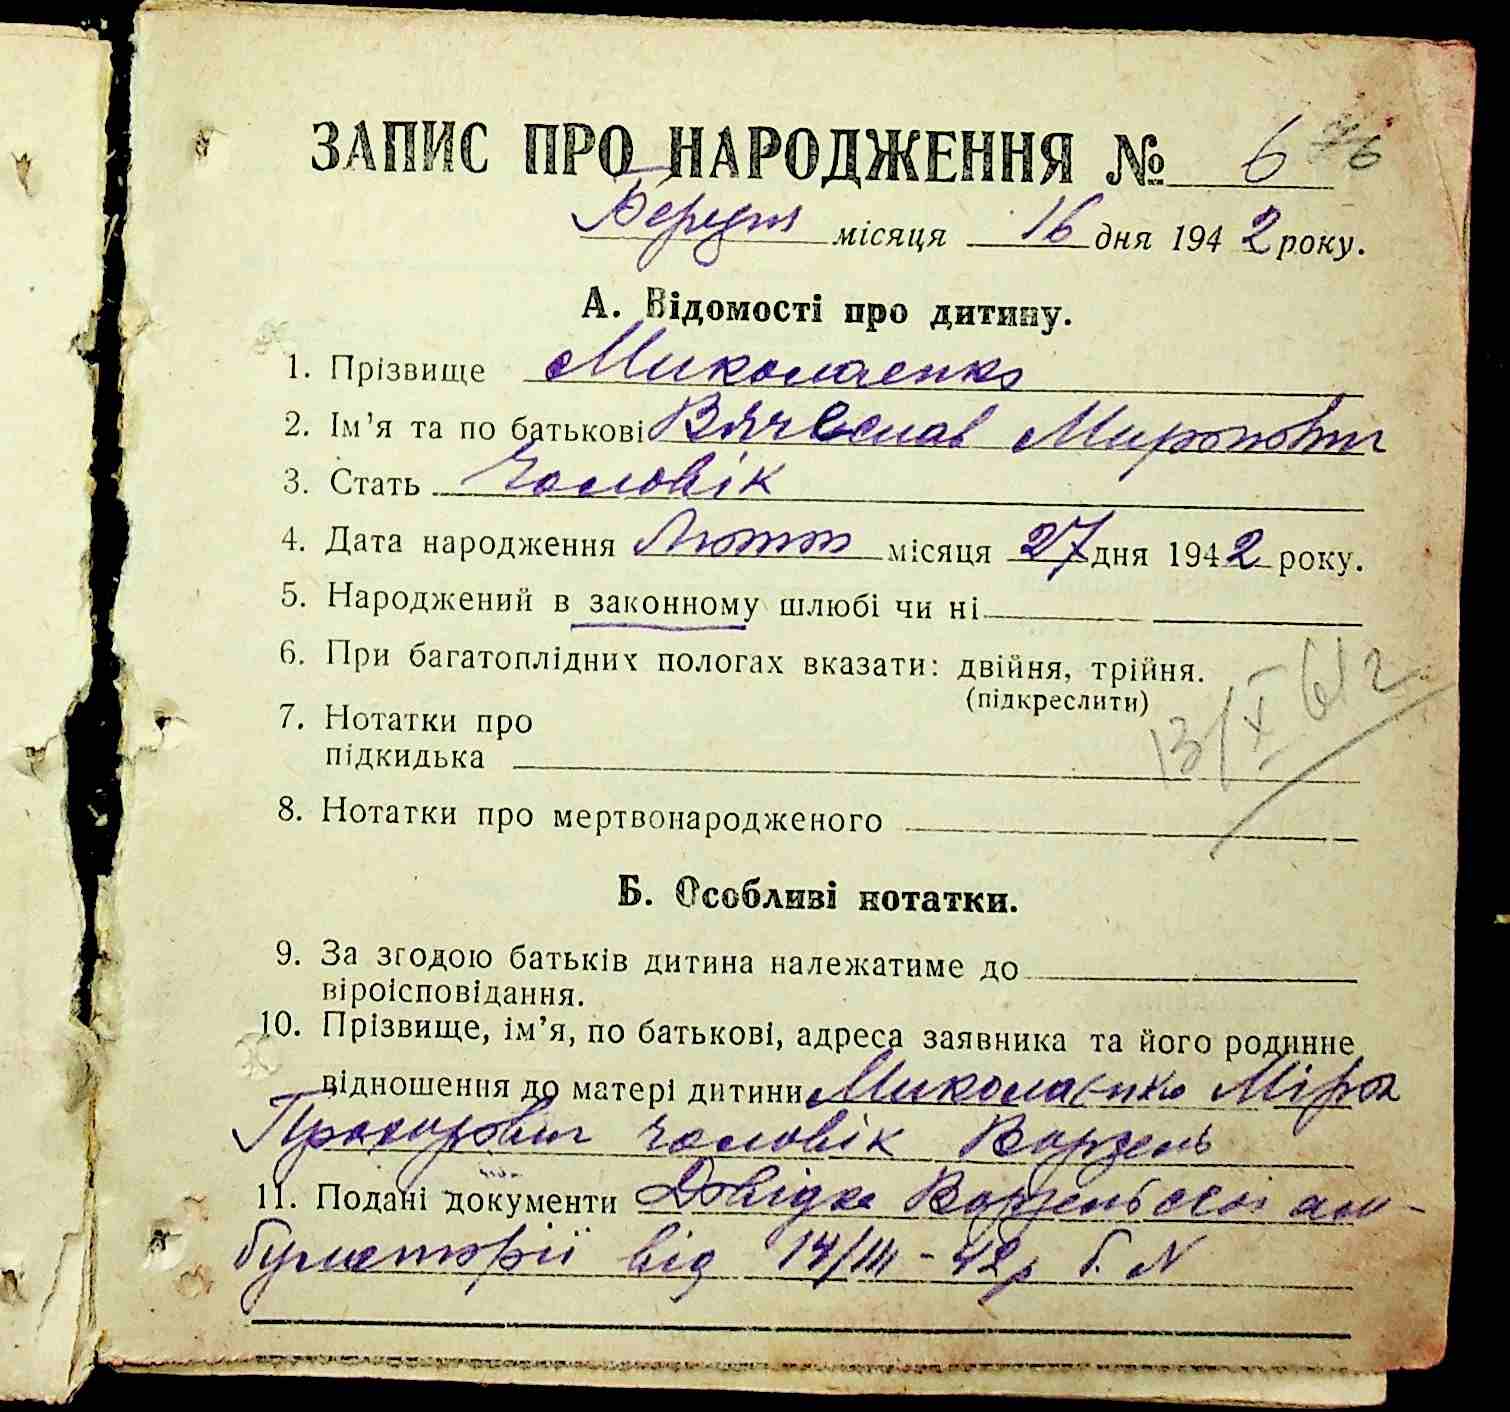 ЗАПИС ПРО НАРОДЖЕННЯ № 6
Березня місяця 16 дня 1942 року.
А. Відомості про дитину.
1. Прізвище Миколаенко
2. Ім’я та по батькові Вячеслав Миронович
3. Стать Чоловік
4. Дата народження Лютого місяця 27 дня 1942 року.
5. Народжений в законному шлюбі чи ні
6. При багатоплідних пологах вказати: двійня, трійня.
(підкреслити)
7. Нотатки про
підкидька
13/X 61 г.
8. Нотатки про мертвонародженого
Б. Особливі нотатки.
9. За згодою батьків дитина належатиме до
віроісповідання.
10. Прізвище, ім’я, по батькові, адреса заявника та його родинне
відношення до матері дитини Миколаенко Мірон
Прохорович чоловік Ворзель
11. Подані документи Довідка Ворзельської ам-
булаторії від 14/III-42р б. N